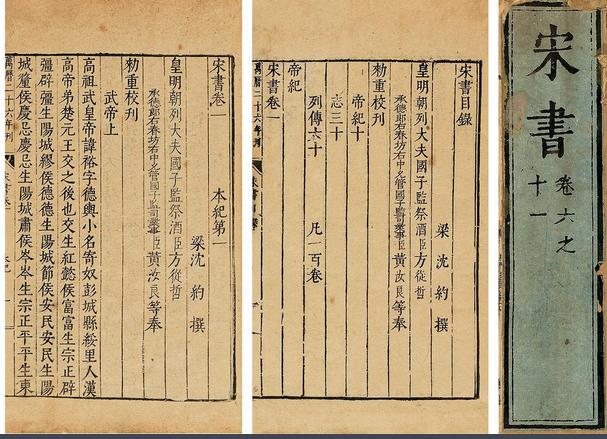 宋書
卷六之
十一
宋書目錄
梁沈約撰
皇明朝列大夫國子監祭酒臣方從哲
承德郎右春坊右中允管國子監司業事臣黃汝良等奉
勑重校刊
帝紀十
志三十
列傳六十
凡一百卷
宋書卷一
帝紀
萬曆二十六年刊
宋書卷一
本紀第一
梁沈約撰
皇明朝列大夫國子監祭酒臣方從哲
承德郎右春坊右中允管國子監司業事臣黃汝良等奉
勑重校刊
武帝上
高祖武皇帝諱裕字德輿小名寄奴彭城縣綏里人漢
高帝弟楚元王交之後也交生紅懿侯富富生宗正辟
彊辟彊生陽城繆侯德德生陽城節侯安民安民生陽
城釐侯慶忌慶忌生陽城肅侯岑岑生宗正平平生東
萬曆二十六年刊
宋書卷一